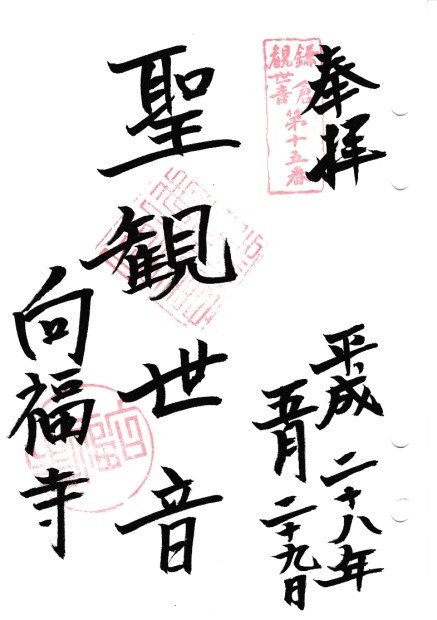 奉拝
鎌倉
観世音第十五番
平成二十八年
五月二十九日
聖観世音
向福寺